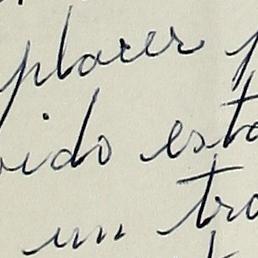 placer p
ido esta
un tra